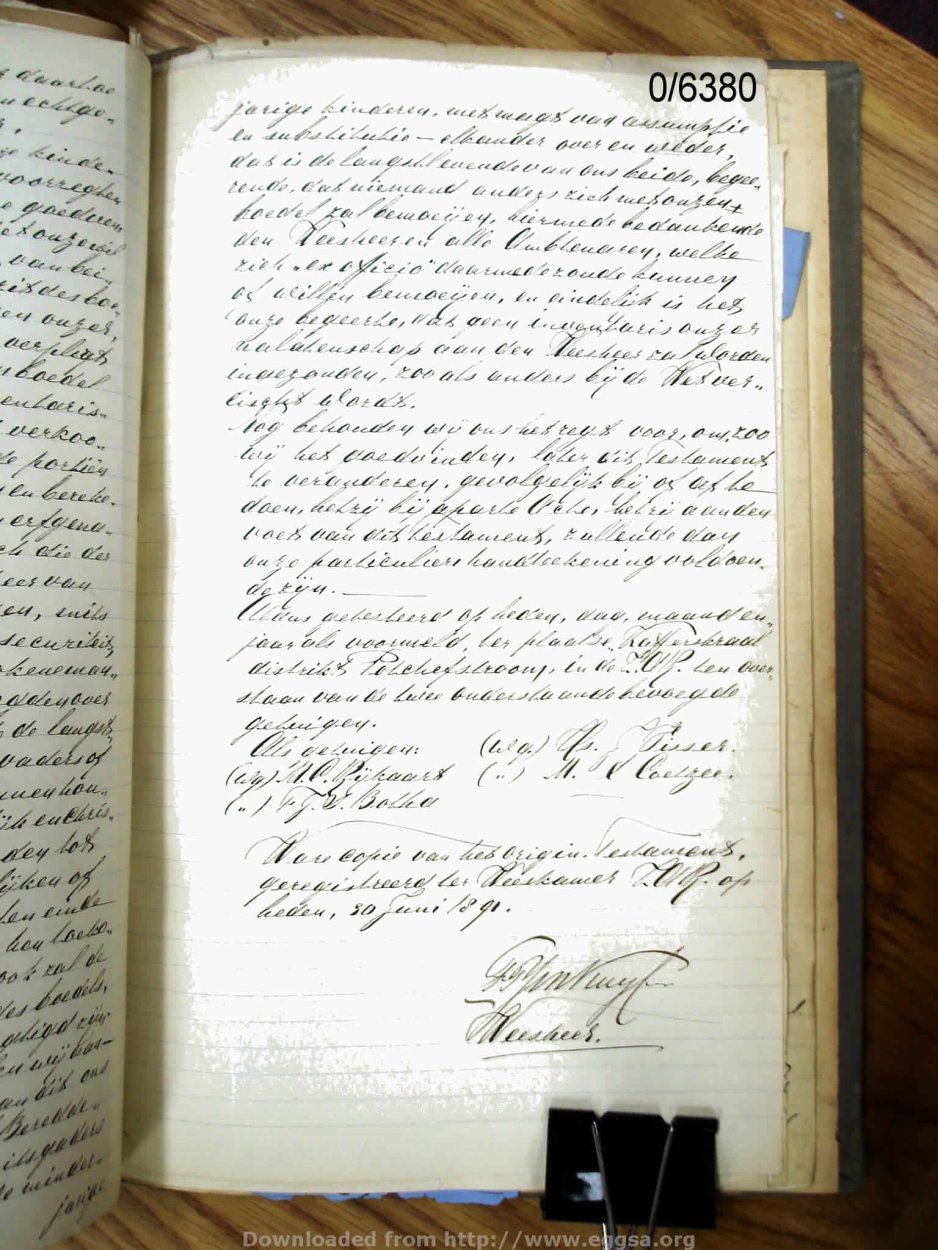 0/6380
jarige kinderen, met magt van assumptie
en substitutie — elkander over en weder,
dat is de langstlevende van ons beide, begee„
rende, dat niemand anders zich met onzen
boedel zal bemoeijen, hiermede bedankende
den Weesheer en alle Ambtenaren, welke
zich „ex officio" daarmede zoude kunnen
of willen bemoeijen, en eindelijk is het
onze begeerte, dat geen inventaris onzer
nalatenschap aan den Weesheer zal worden
ingezonden, zooals anders bij de Wet ver„
eischt wordt.
Nog behouden wij ons het regt voor, om, zoo
wij het goedvinden, later dit Testament
te veranderen, gevolgelijk bij of af te
doen, hetzij bij aparte Acte, hetzij aan den
voet van dit testament, zullende dan
onze particuliere handteekening voldoen„
de zijn.
Aldus getesteerd op heden, dag, maand en„
jaar als voormeld, ter plaatse Kafferskraal
distrikt Potchefstroom, in de Z.A.R. ten over„
staan van de twee onderstaande bevoegde
getuigen.
Als getuigen: (wg.) Ps. J Visser.
(wg) M.C. Rijkaart („) M. Coetzee.
(„) F.J.S. Botha
Ware copie van het origin. Testament,
geregistreerd ter Weeskamer Z.A.R. op
heden, 30 Juni 1891.
Weesheer.
daartoe
echtge„
kinde„
voorregten
goederen
van bei
onzer,
verpligt
boedel
verkoo„
de portien
en bereke„
erfgena„
die der
van
mits
securiteit
over
de langst
en chris„
den tot
lijken of
ten einde
zal de
des boedels,
dit ons
Beredde„
de minder„
jarige
Downloaded from http://www.eggsa.org